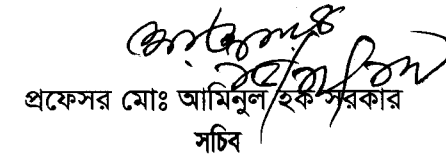 প্রফেসর মোঃ আমিনুল হক সরকার
সচিব